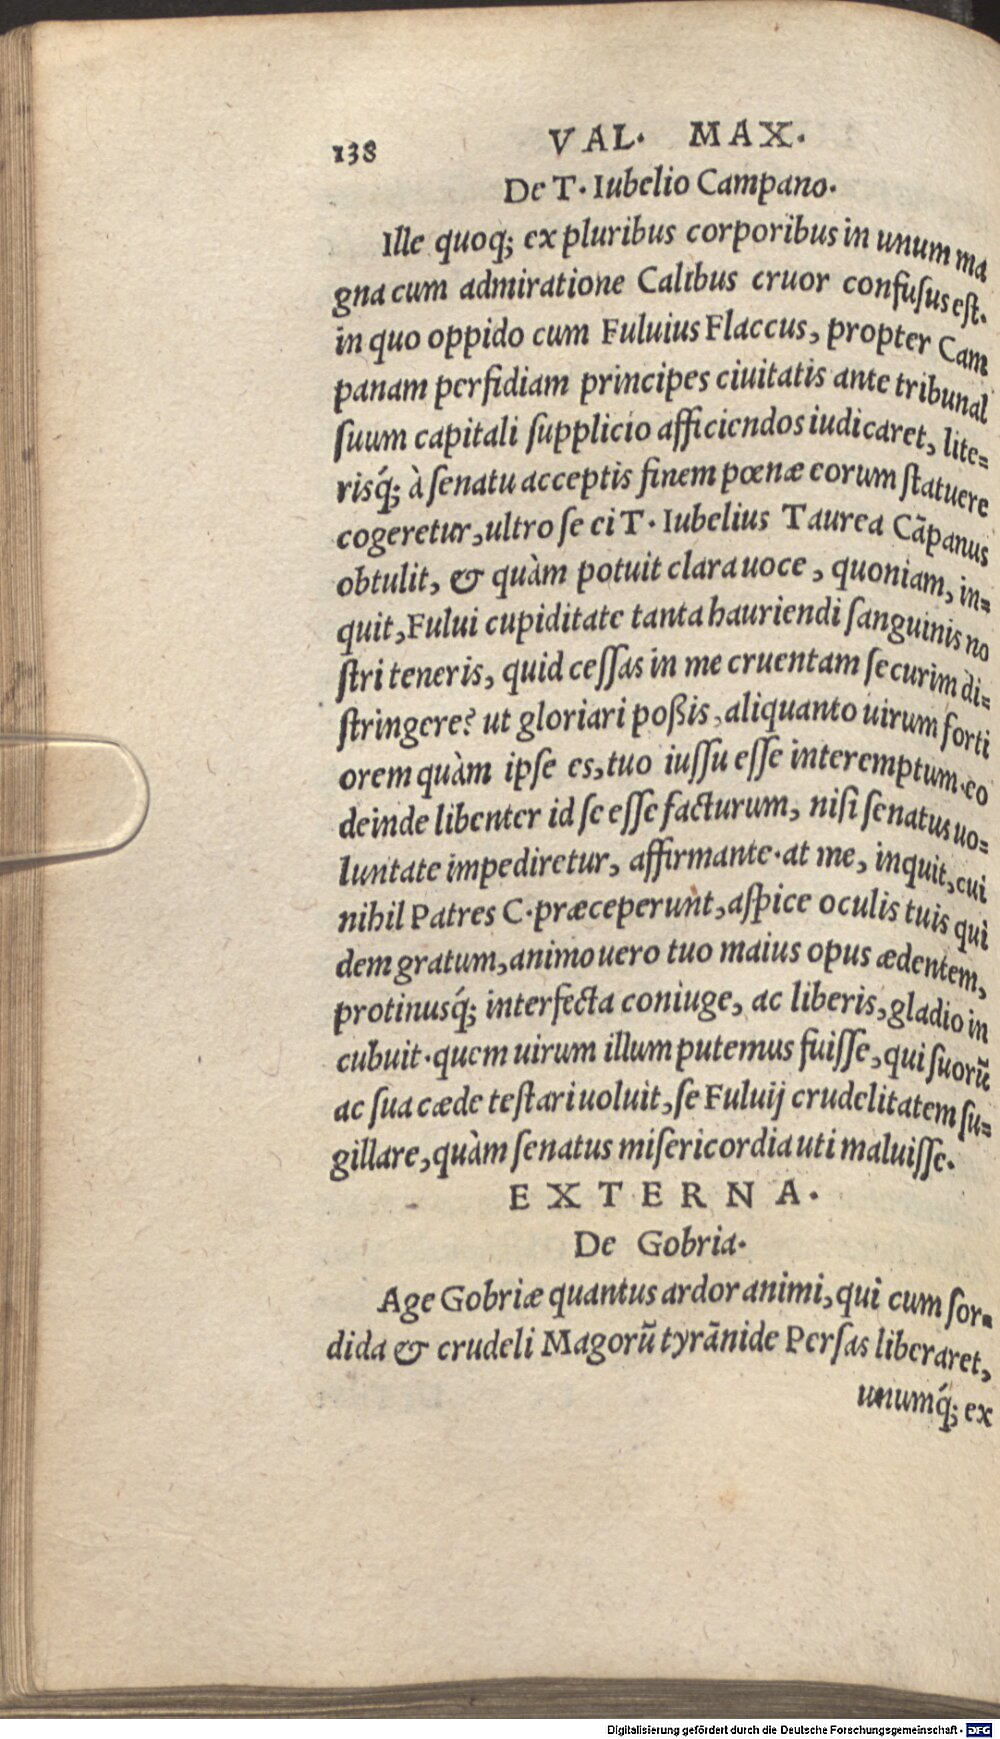 138 VAL. MAX.
De T. Iubelio Campano.
Ille quoq; ex pluribus corporibus in unum ma
gna cum admiratione Calibus cruor confusus est.
in quo oppido cum Fuluius Flaccus, propter Cam
panam perfidiam principes ciuitatis ante tribunal
suum capitali supplicio afficiendos iudicaret, lite=
risq́; à senatu acceptis finem pœnæ eorum statuere
cogeretur, ultro se ei T. Iubelius Taurea Cãpanus
obtulit, & quàm potuit clara uoce, quoniam, in=
quit, Fului cupiditate tanta hauriendi sanguinis no
stri teneris, quid cessas in me cruentam securim di=
stringere? ut gloriari poßis, aliquanto uirum forti
orem quàm ipse es, tuo iussu esse interemptum. eo
deinde libenter id se esse facturum, nisi senatus uo=
luntate impediretur, affirmante. at me, inquit, cui
nihil Patres C. præceperunt, aspice oculis tuis qui
dem gratum, animo uero tuo maius opus ædentem,
protinusq́; interfecta coniuge, ac liberis, gladio in
cubuit. quem uirum illum putemus fuisse, qui suorũ
ac sua cæde testari uoluit, se Fuluij crudelitatem su=
gillare, quàm senatus misericordia uti maluisse.
EXTERNA.
De Gobria.
Age Gobriæ quantus ardor animi, qui cum sor=
dida & crudeli Magorũ tyrãnide Persas liberaret,
unumq́; ex
Digitalisierung gefördert durch die Deutsche Forschungsgemeinschaft - DFG